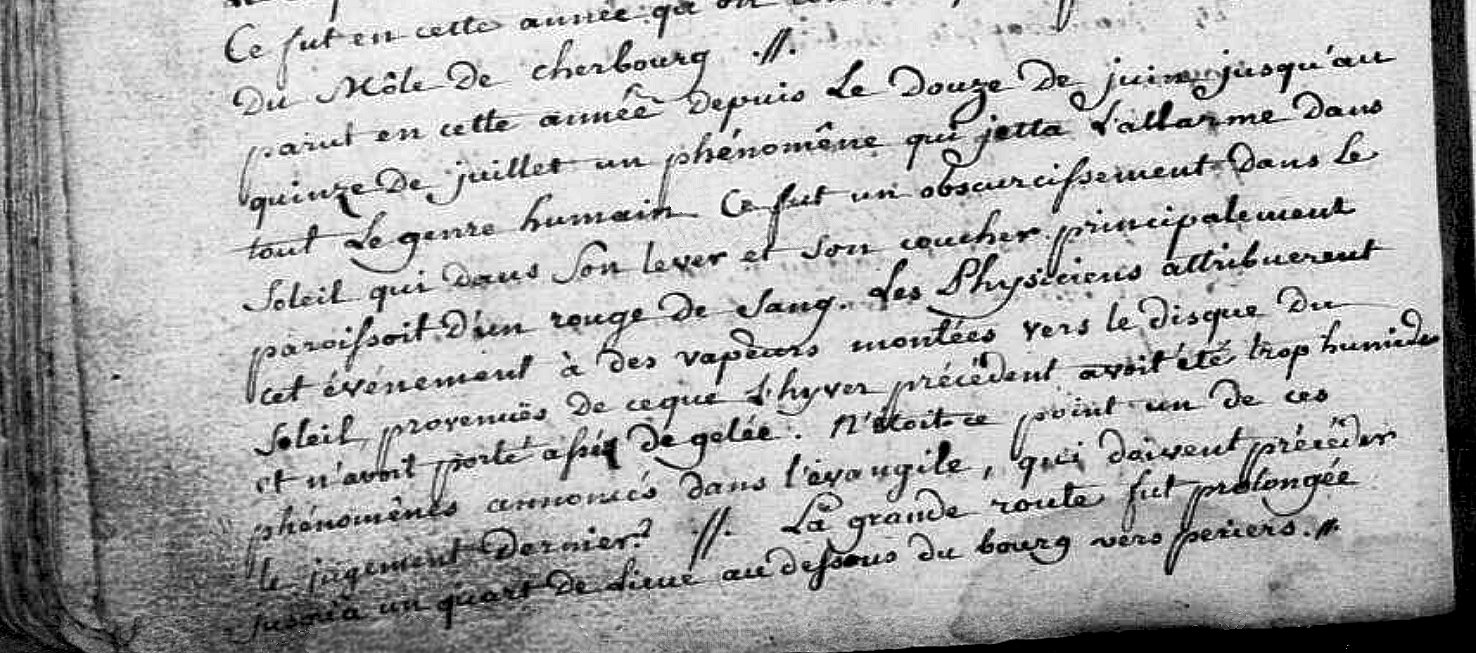 Ce fut en cette année qu'on
Du Môle De cherbourg .//.
parut en cette année Depuis Le Douze De juin jusqu'au
quinze De juillet un phénomêne qui jetta L'allarme Dans
tout Le genre humain Ce fut un obscurcissement Dans Le
Soleil qui dans Son lever et Son coucher principalement
paroissoit D'un rouge De Sang. Les Physiciens attribuerent
cet événement à des vapeurs montées vers le disque Du
Soleil, provenuës De ceque L'hyver précédent avoit été trop humide
et n'avoit porté assez De gelée. N'étoit-ce point un De ces
phénomênes annoncés dans l'évangile, qui doivent précéder
le jugement Dernier? .//. La grande route fut prolongée
jusqu'a un quart De Lieue au dessous du bourg vers periers .//.